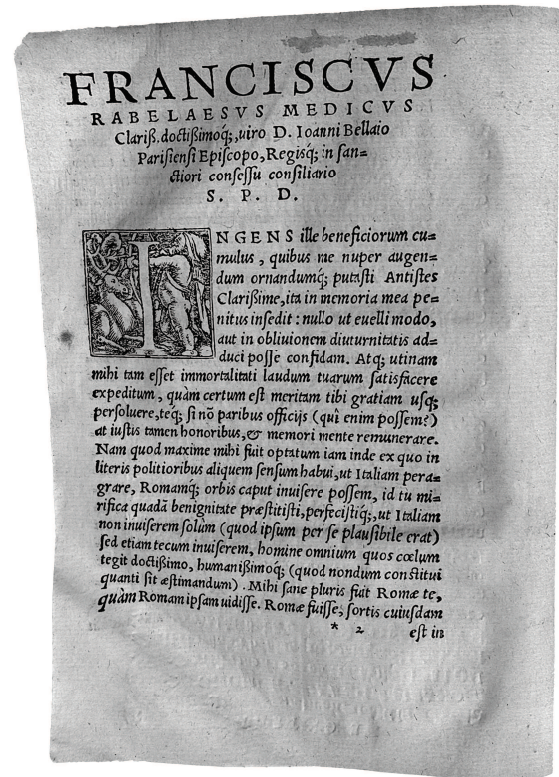 FRANCISCVS
RABELAESVS MEDICVS
Clariß. doctißimoq;, uiro D. Ioanni Bellaio
Parisiensi Episcopo, Regisq́; in san=
ctiori consessu consiliario
S. P. D.
INGENS ille beneficiorum cu=
mulus, quibus me nuper augen=
dum ornandumq́; putasti Antistes
Clarißime, ita in memoria mea pe=
nitus insedit: nullo ut euelli modo,
aut in obliuionem diuturnitatis ad=
duci posse confidam. Atq; utinam
mihi tam esset immortalitati laudum tuarum satisfacere
expeditum, quàm certum est meritam tibi gratiam usq;
persoluere, teq; si nō paribus officijs (quî enim possem?)
at iustis tamen honoribus, & memori mente remunerare.
Nam quod maxime mihi fuit optatum iam inde ex quo in
literis politioribus aliquem sensum habui, ut Italiam pera=
grare, Romamq́; orbis caput inuisere possem, id tu mi=
rifica quadā benignitate præstitisti, perfecistiq́;, ut Italiam
non inuiserem solùm (quod ipsum per se plausibile erat)
sed etiam tecum inuiserem, homine omnium quos cœlum
tegit doctißimo, humanißimoq́; (quod nondum constitui
quanti sit æstimandum). Mihi sane pluris fuit Romæ te,
quàm Romam ipsam uidisse. Romæ fuisse, sortis cuiusdam
* 2 est in